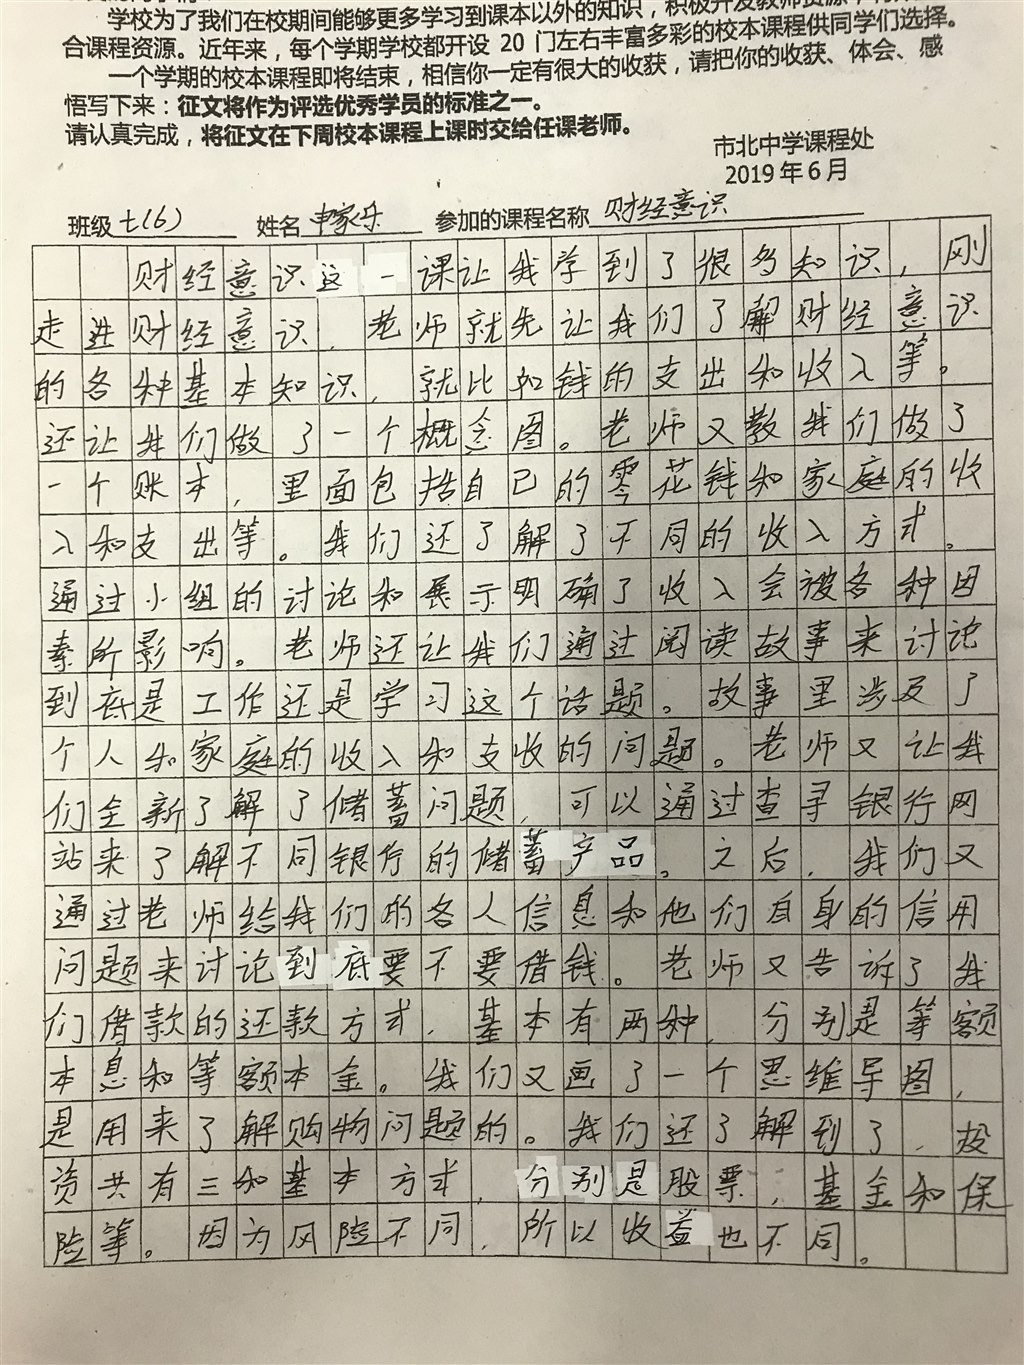 学校为了我们在校期间能够更多学习到课本以外的知识，积极开发教师资源，
合课程资源。近年来，每个学期学校都开设 20 门左右丰富多彩的校本课程供同学们选择。
一个学期的校本课程即将结束，相信你一定有很大的收获，请把你的收获、体会、感
悟写下来：征文将作为评选优秀学员的标准之一。
请认真完成，将征文在下周校本课程上课时交给任课老师。
市北中学课程处
2019 年 6 月
班级 七(6) 姓名 申家乐 参加的课程名称 财经意识
财经意识这一课让我学到了很多知识，刚
走进财经意识，老师就先让我们了解财经意识
的各种基本知识，就比如钱的支出和收入等。
还让我们做了一个概念图。老师又教我们做了
一个账本，里面包括自己的零花钱和家庭的收
入和支出等。我们还了解了不同的收入方式。
通过小组的讨论和展示明确了收入会被各种因
素所影响。老师还让我们通过阅读故事来讨论
到底是工作还是学习这个话题。故事里涉及了
个人和家庭的收入和支收的问题。老师又让我
们全新了解了储蓄问题，可以通过查寻银行网
站来了解不同银行的储蓄产品。之后，我们又
通过老师给我们的各人信息和他们自身的信用
问题来讨论到底要不要借钱。老师又告诉了我
们借款的还款方式，基本有两种，分别是等额
本息和等额本金。我们又画了一个思维导图，
是用来了解购物问题的。我们还了解到了，投
资共有三和基本方式，分别是股票，基金和保
险等。因为风险不同，所以收益也不同。